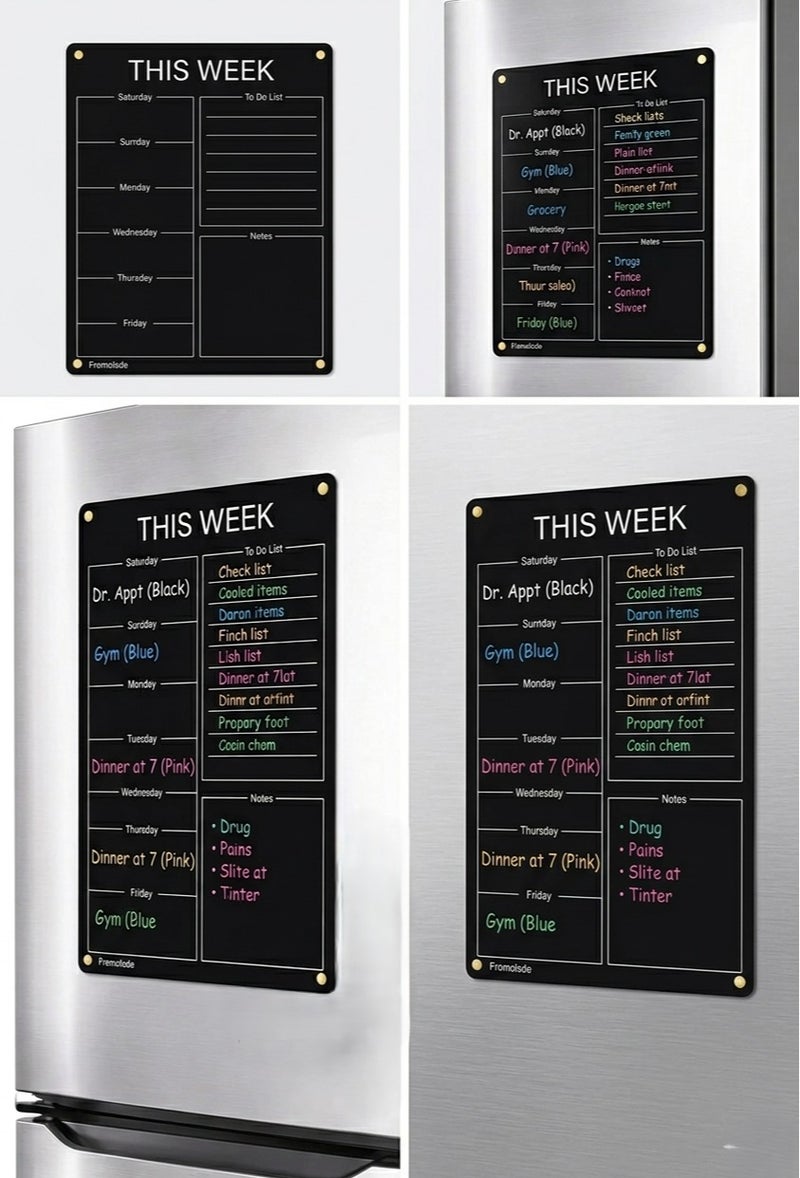 THIS WEEK
Saturday
Surrday
Menday
Wednesday
Thursday
Friday
To Do List
Notes
Fromolsde
THIS WEEK
Saturday
Dr. Appt (8lack)
Sunday
Gym (Blue)
Grocery
Wednesday
Dinner at 7 (Pink)
Thuur saleo)
Friday
Fridoy (Blue)
Sheck liats
Femfy green
Plain licf
Dinner efiink
Dinner et 7mt
Hergoe stent
Notes
• Drugs
• Fince
• Conknot
• Shvcet
THIS WEEK
Saturday
Dr. Appt (Black)
Gym (Blue)
Monday
Tuesday
Dinner at 7 (Pink)
Wednesday
Thursday
Dinner at 7 (Pink)
Friday
Gym (Blue
To Do List
Check list
Cooled items
Daron items
Finch list
Lish list
Dinner at 7lot
Dinnr at arfint
Propary foot
Cosin chem
Notes
• Drug
• Pains
• Slite at
• Tinter
THIS WEEK
Saturday
Dr. Appt (Black)
Sumday
Gym (Blue)
Monday
Tuesday
Dinner at 7 (Pink)
Wednesday
Thursday
Dinner at 7 (Pink)
Friday
Gym (Blue
Fromolsde
To Do List
Check list
Cooled items
Daron items
Finch list
Lish list
Dinner at 7lat
Dinnr ot orfint
Propary foot
Cosin chem
Notes
• Drug
• Pains
• Slite at
• Tinter